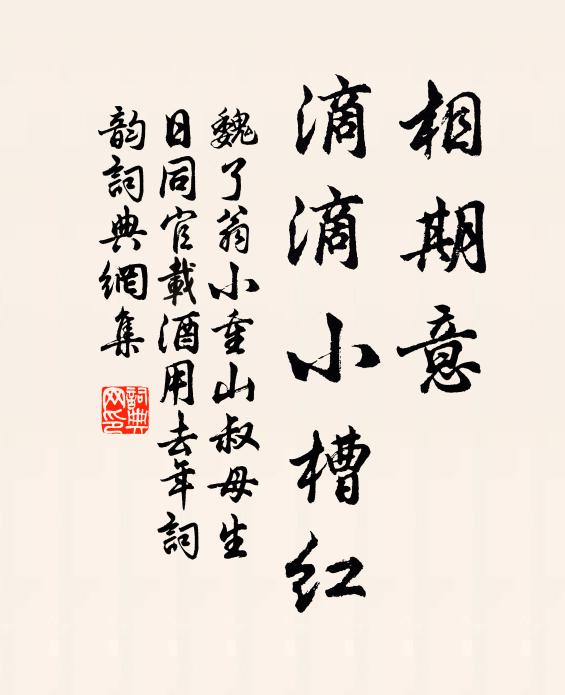 相期意
滴滴小槽紅
魏了翁小重山叔母生
日同官載酒用去年詞
韵詞典網集
詞典
网印